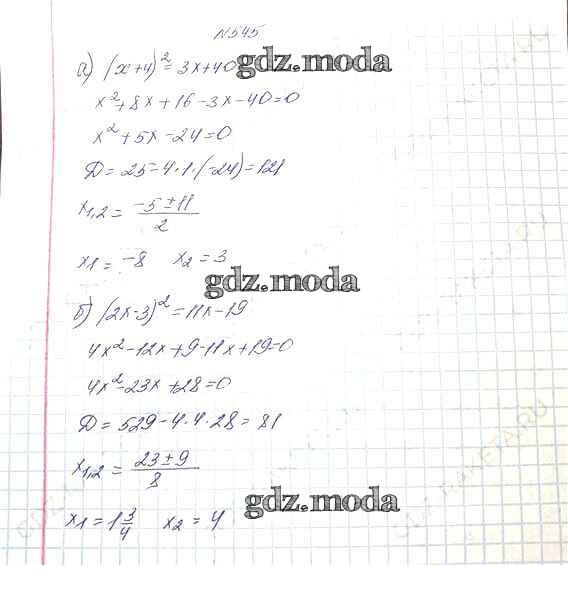 N545
а) (x+4)² = 3x+40 gdz.moda
x²+8x+16-3x-40=0
x²+5x-24=0
D=25-4·1·(-24)=121
x1,2 = -5±11/2
x1 = -8 x2 = 3
gdz.moda
б) (2x-3)²=11x-19
4x²-12x+9-11x+19=0
4x²-23x+28=0
D=529-4·4·28=81
x1,2 = 23±9/8
gdz.moda
x1 = 1 3/4 x2 = 4